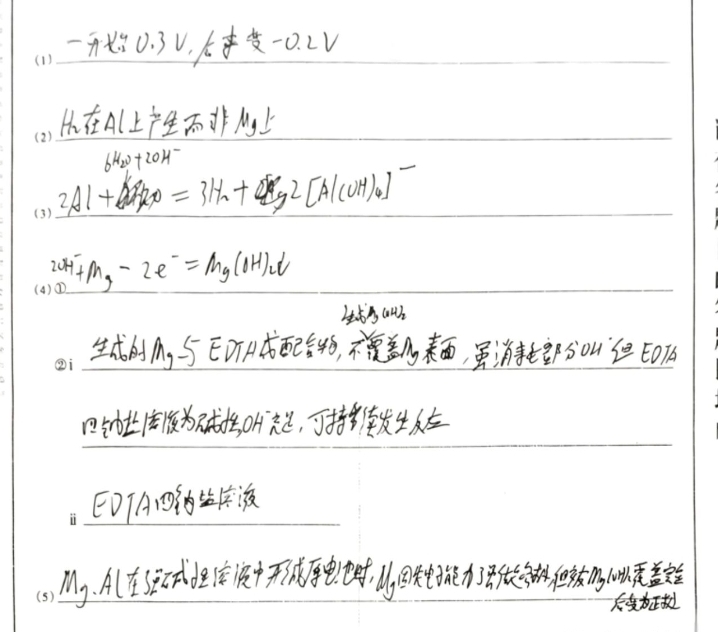 (1) 一开始0.3V,后来变-0.2V
(2) H₂在Al上产生而非Mg上
6H₂O+2OH⁻
(3) 2Al+ = 3H₂+ 2[Al(OH)₄]⁻
(4)① 2OH⁻+Mg-2e⁻=Mg(OH)₂↓
生成Mg(OH)₂
②i 生成的Mg与EDTA成配合物,不覆盖Mg表面,虽消耗部分OH⁻但EDTA
四钠盐溶液为碱性,OH⁻充足,可持续发生反应
ii EDTA四钠盐溶液
(5) Mg、Al在强碱性溶液中形成原电池时,Mg因失电子能力强做负极,但被Mg(OH)₂覆盖完全
后变为正极